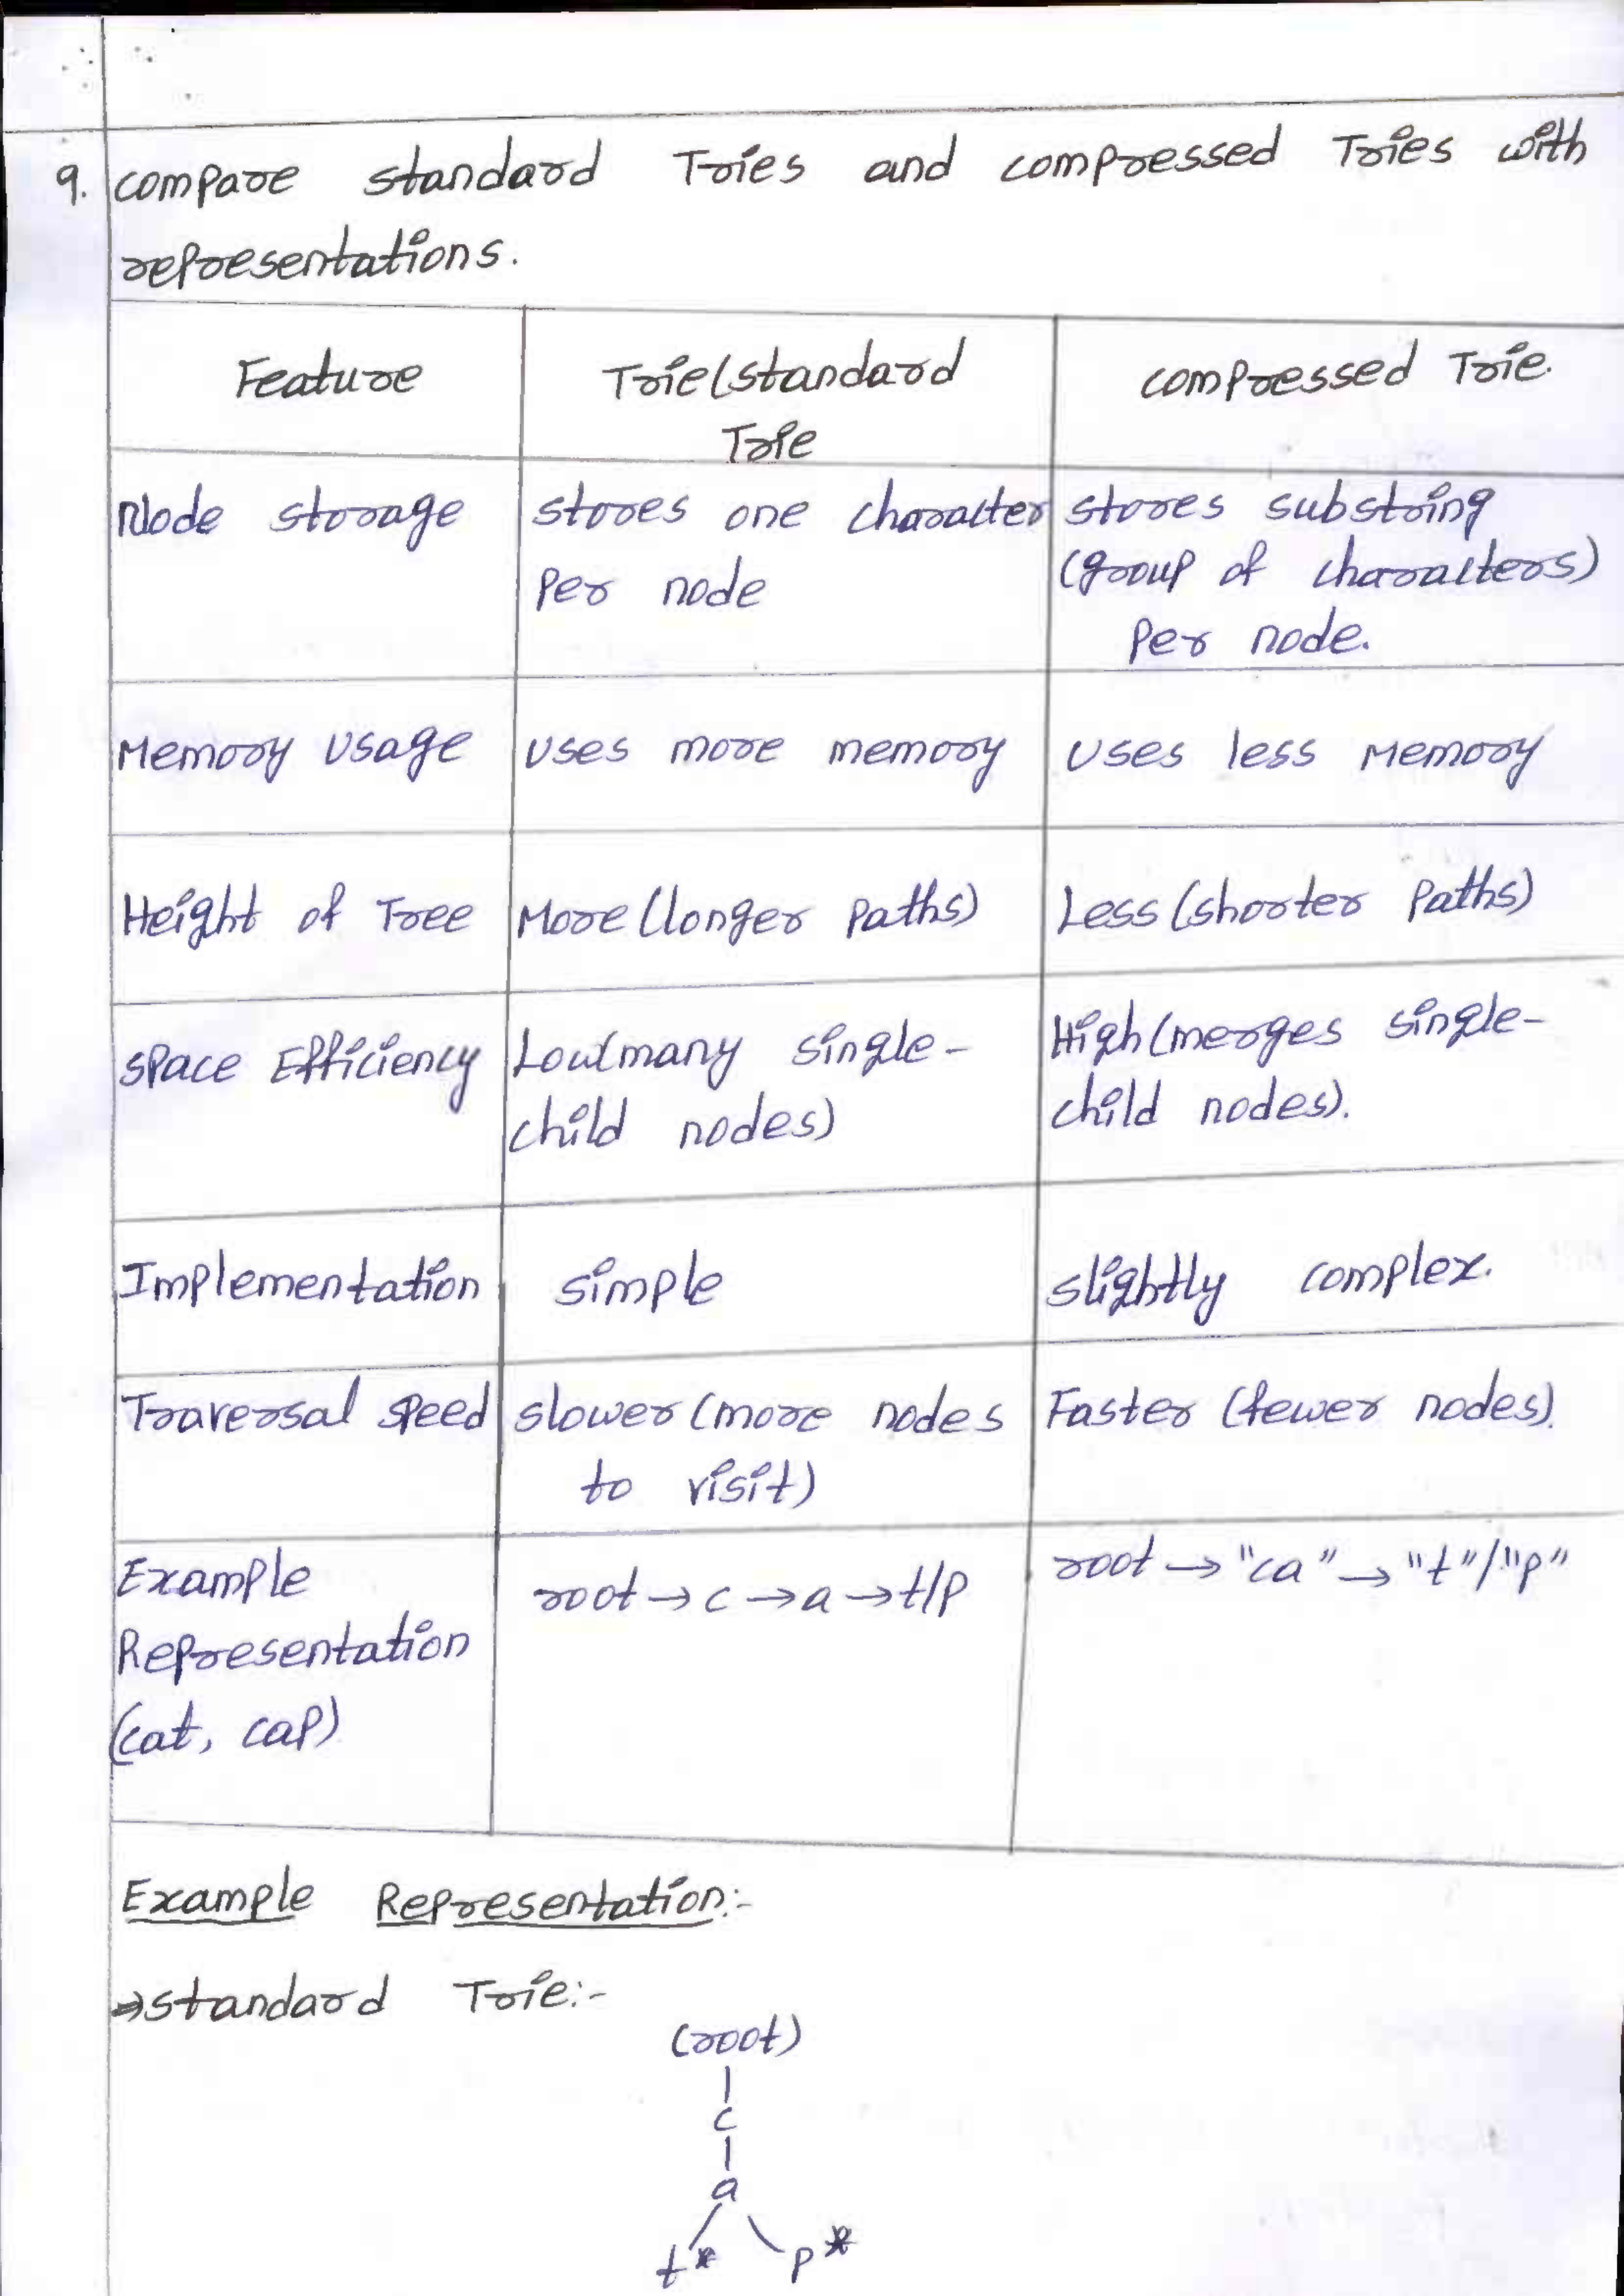 9. compare standard Tries and compressed Tries with
representations.
Feature
Trie(standard
Trie
compressed Trie.
Node storage
stores one character
per node
stores substring
(group of characters)
per node.
Memory Usage
uses more memory
uses less Memory
Height of Tree
More (longer paths)
Less (shorter paths)
space Efficiency
Low(many single-
child nodes)
High(merges single-
child nodes).
Implementation
simple
slightly complex.
Traversal speed
slower (more nodes
to visit)
Faster (fewer nodes).
Example
Representation
(cat, cap)
root → c → a → t/p
root → "ca" → "t"/"p"
Example Representation:-
⇒standard Trie:-
(root)
c
a
t* p*